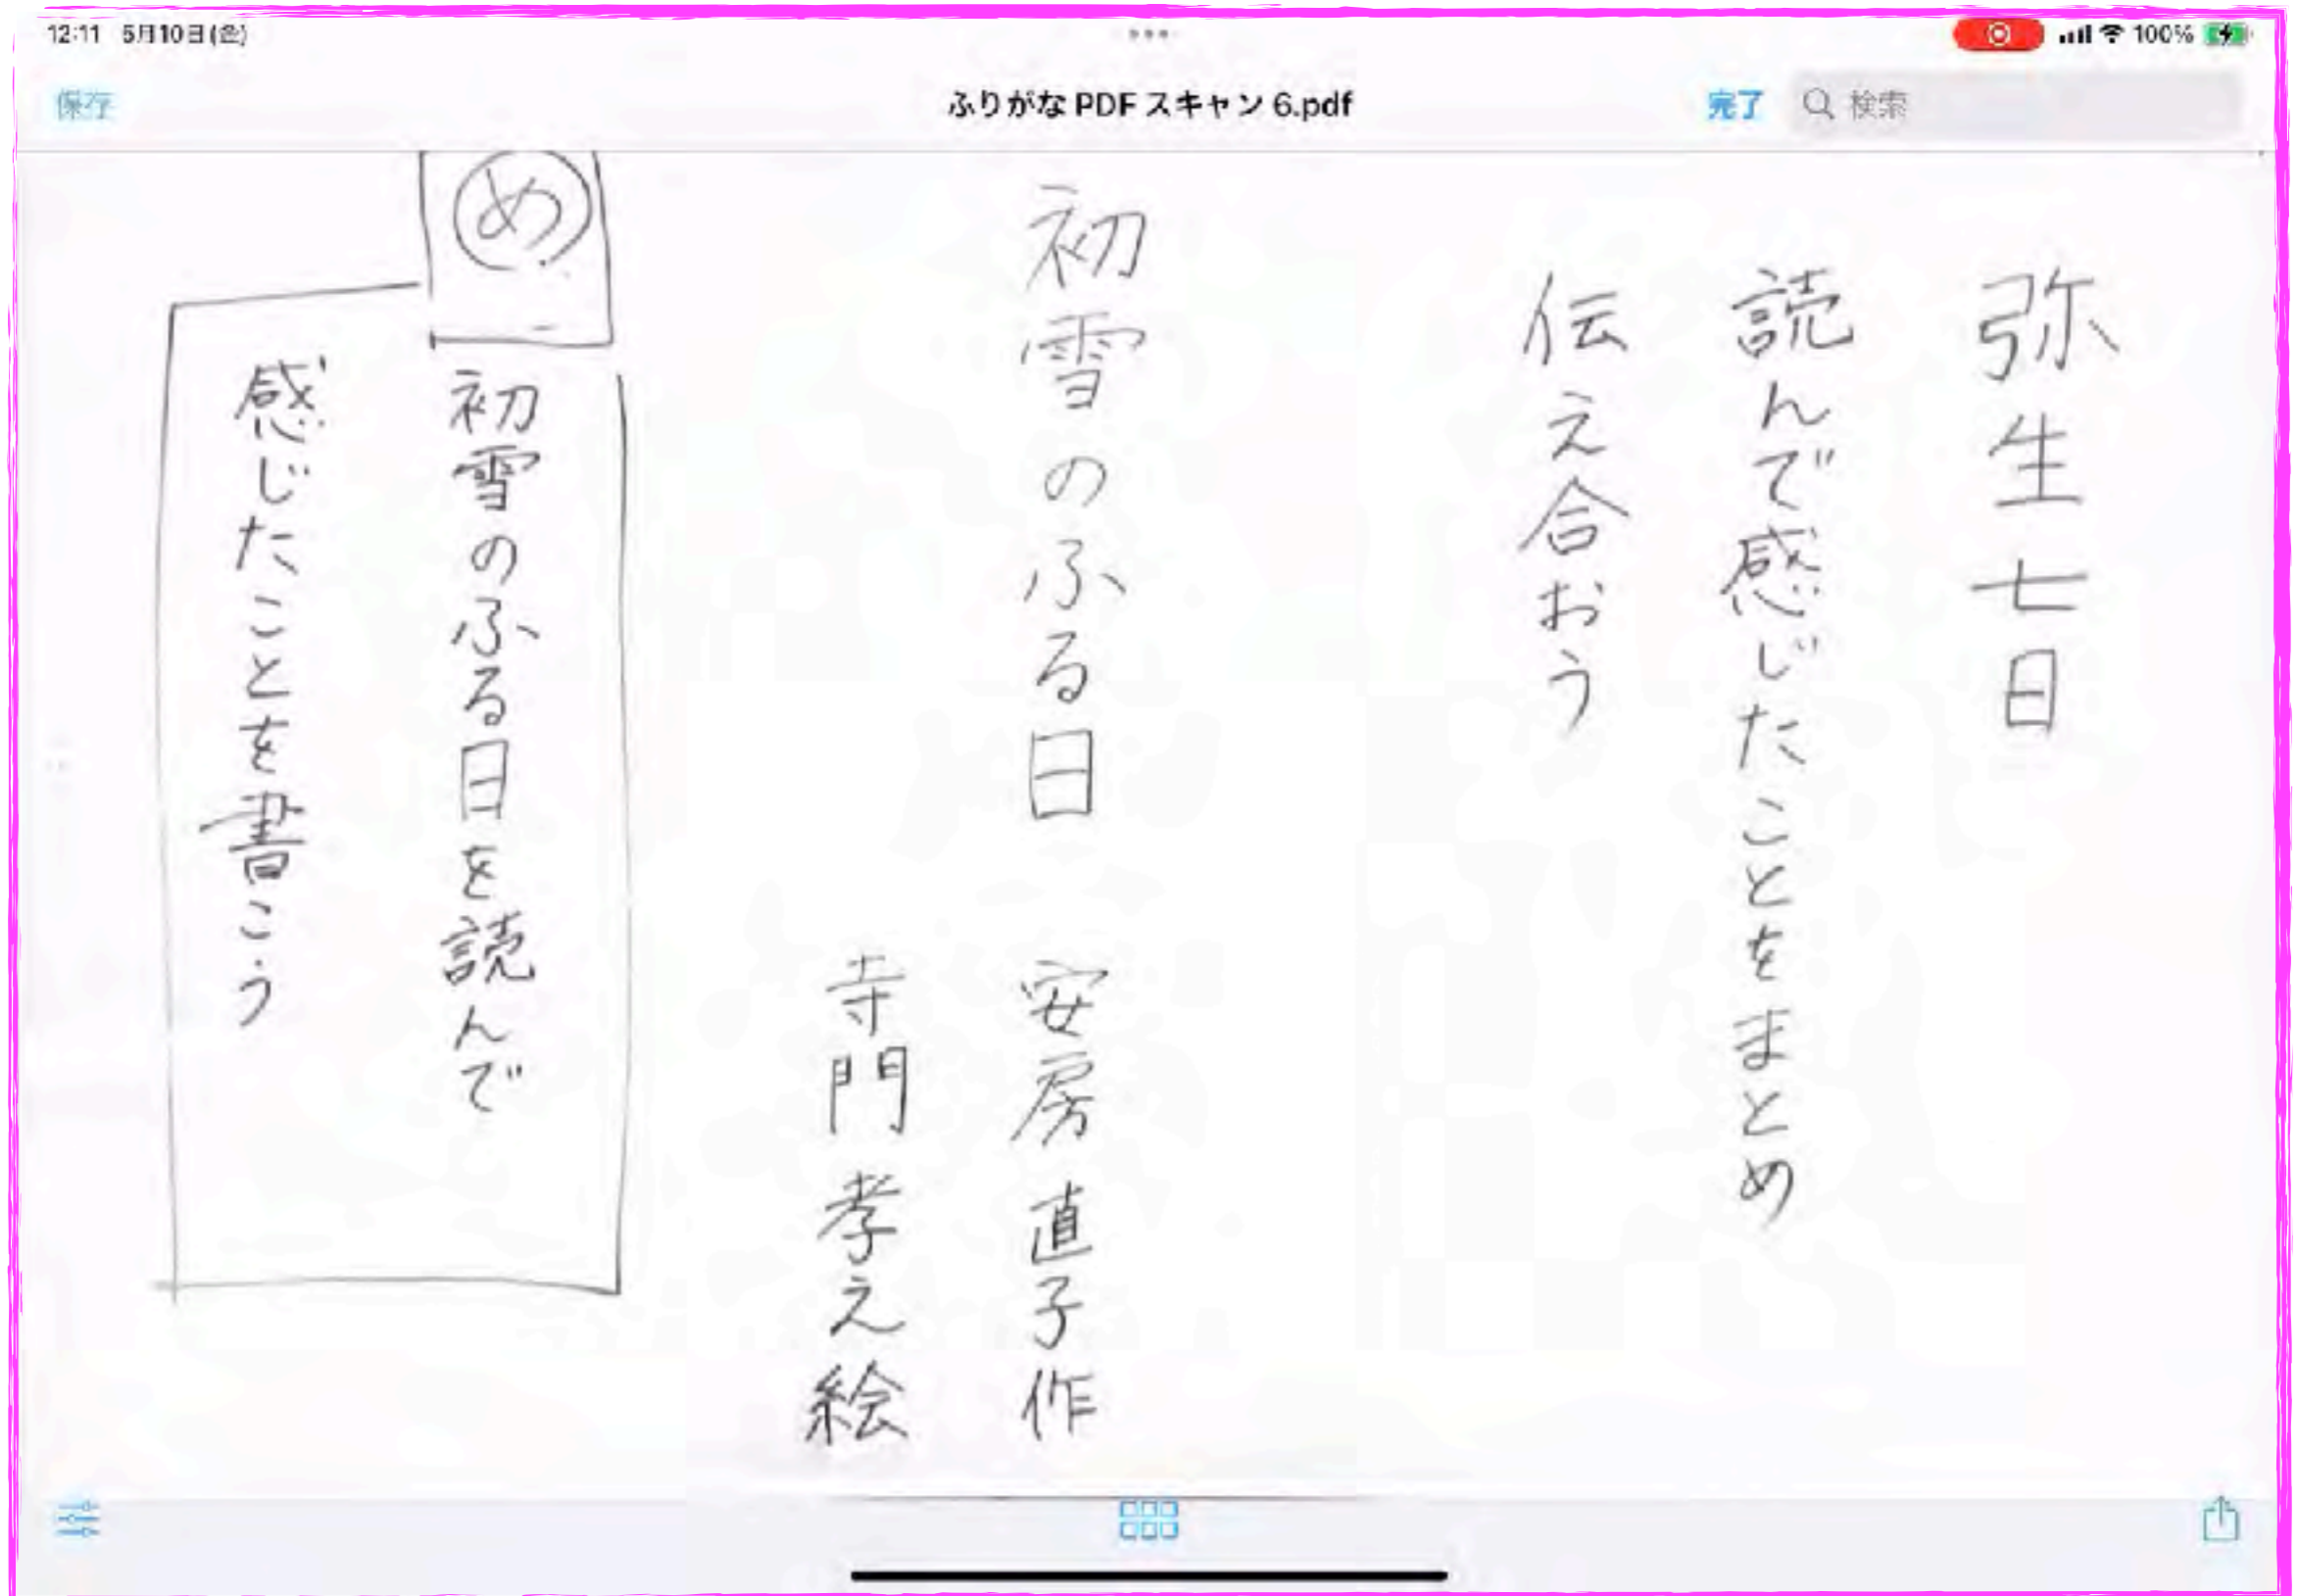 12:11 5月10日(金)
100%
保存
ふりがな PDF スキャン 6.pdf
完了
検索
弥生七日
読んで感じたことをまとめ
伝え合おう
初雪のふる日 安房直子作
寺門孝え絵
め
初雪のふる日を読んで
感じたことを書こう